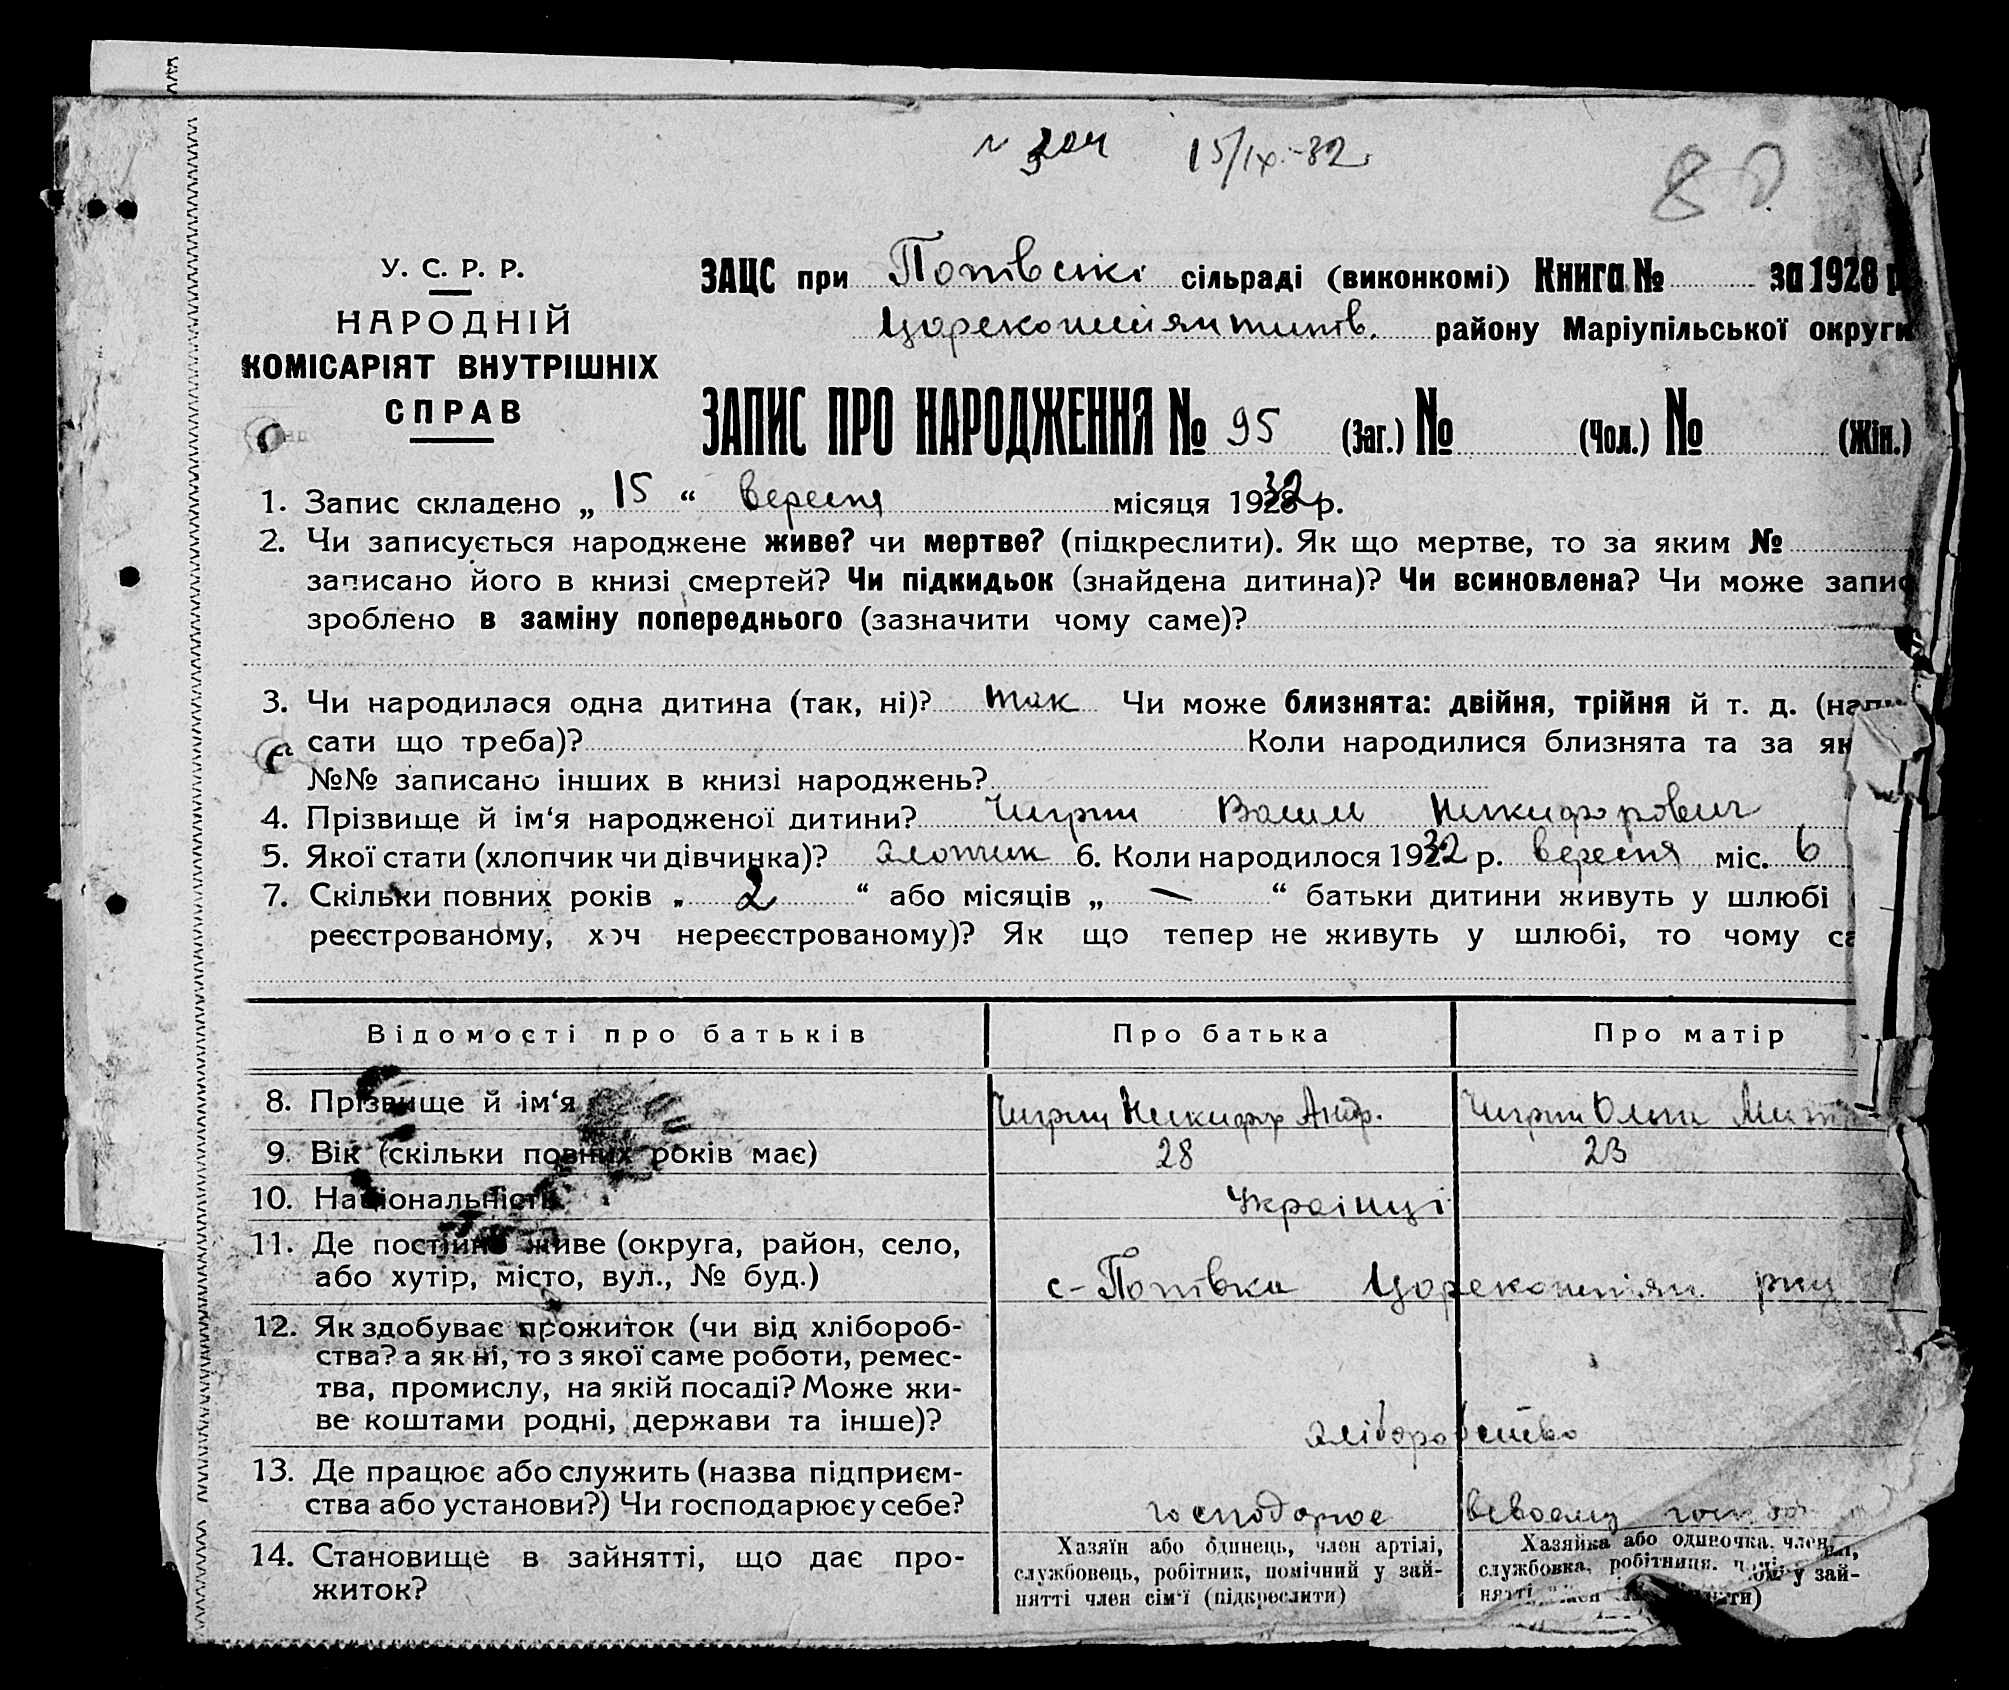 15/IX-32
У. С. Р. Р.
НАРОДНІЙ
КОМІСАРІЯТ ВНУТРІШНІХ
СПРАВ
ЗАЦС при Потівські сільраді (виконкомі) Книга № за 1928 р
району Маріупільської округи
ЗАПИС ПРО НАРОДЖЕННЯ № 95 (Заг.) № (Чол.) № (Жін.)
1. Запис складено „ 15 “ вересня місяця 1932 р.
2. Чи записується народжене живе? чи мертве? (підкреслити). Як що мертве, то за яким №
записано його в книзі смертей? Чи підкидьок (знайдена дитина)? Чи всиновлена? Чи може запис
зроблено в заміну попереднього (зазначити чому саме)?
3. Чи народилася одна дитина (так, ні)? так Чи може близнята: двійня, трійня й т. д. (напи-
сати що треба)? Коли народилися близнята та за як
№№ записано інших в книзі народжень?
4. Прізвище й ім‘я народженої дитини? Чигрин Никифорович
5. Якої стати (хлопчик чи дівчинка)? хлопчик 6. Коли народилося 1932 р. вересня міс. 6
7. Скільки повних років „ 2 “ або місяців „ — “ батьки дитини живуть у шлюбі
реєстрованому, хоч нереєстрованому)? Як що тепер не живуть у шлюбі, то чому са
Відомості про батьків Про батька Про матір
8. Прізвище й ім‘я Чигрин Никифор Андр. Чигрин Ольга
9. Вік (скільки повних років має) 28 23
10. Національність Українці
11. Де постійно живе (округа, район, село,
або хутір, місто, вул., № буд.) с-Потівка
12. Як здобуває прожиток (чи від хлібороб-
ства? а як ні, то з якої саме роботи, ремес-
тва, промислу, на якій посаді? Може жи-
ве коштами родні, держави та інше)? хліборобство
13. Де працює або служить (назва підприєм-
ства або установи?) Чи господарює у себе? господарює всвоему
14. Становище в зайнятті, що дає про-
житок?
Хазяїн або одинець, член артілі,
службовець, робітник, помічний у зай-
нятті член сім‘ї (підкреслити)
Хазяйка або одиночка, член
службовка, робітниця, у зай-
нятті